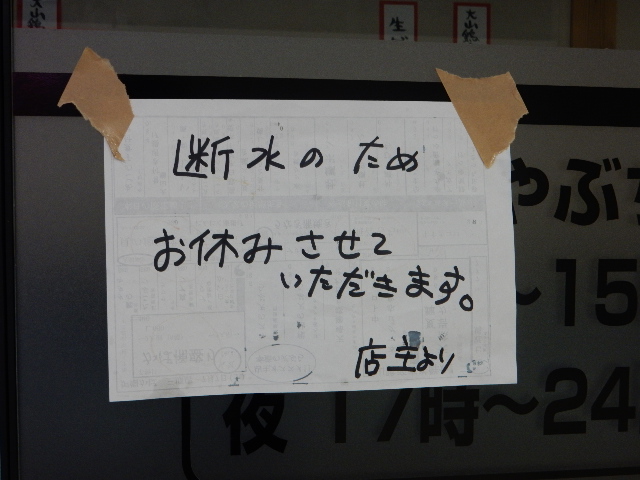 断水のため
お休みさせて
いただきます。
店主より
やぶ
～15
夜 17時～24